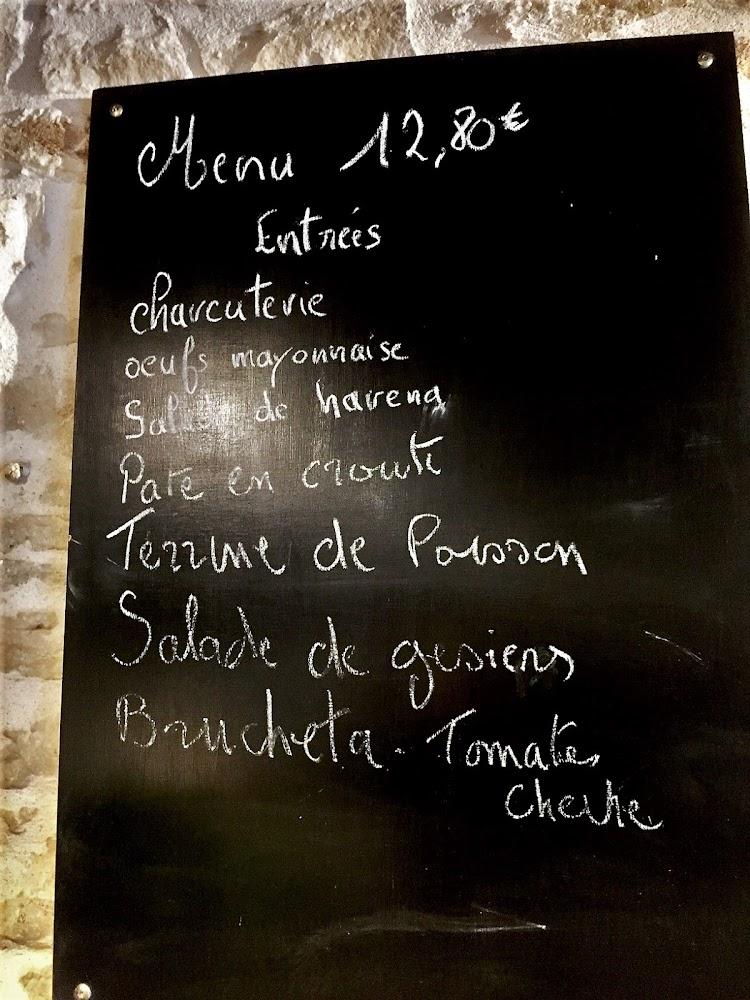 Menu 12,80€
Entrées
charcuterie
oeufs mayonnaise
Salade de hareng
Pate en croute
Terrine de Poisson
Salade de gesiers
Brucheta - Tomate,